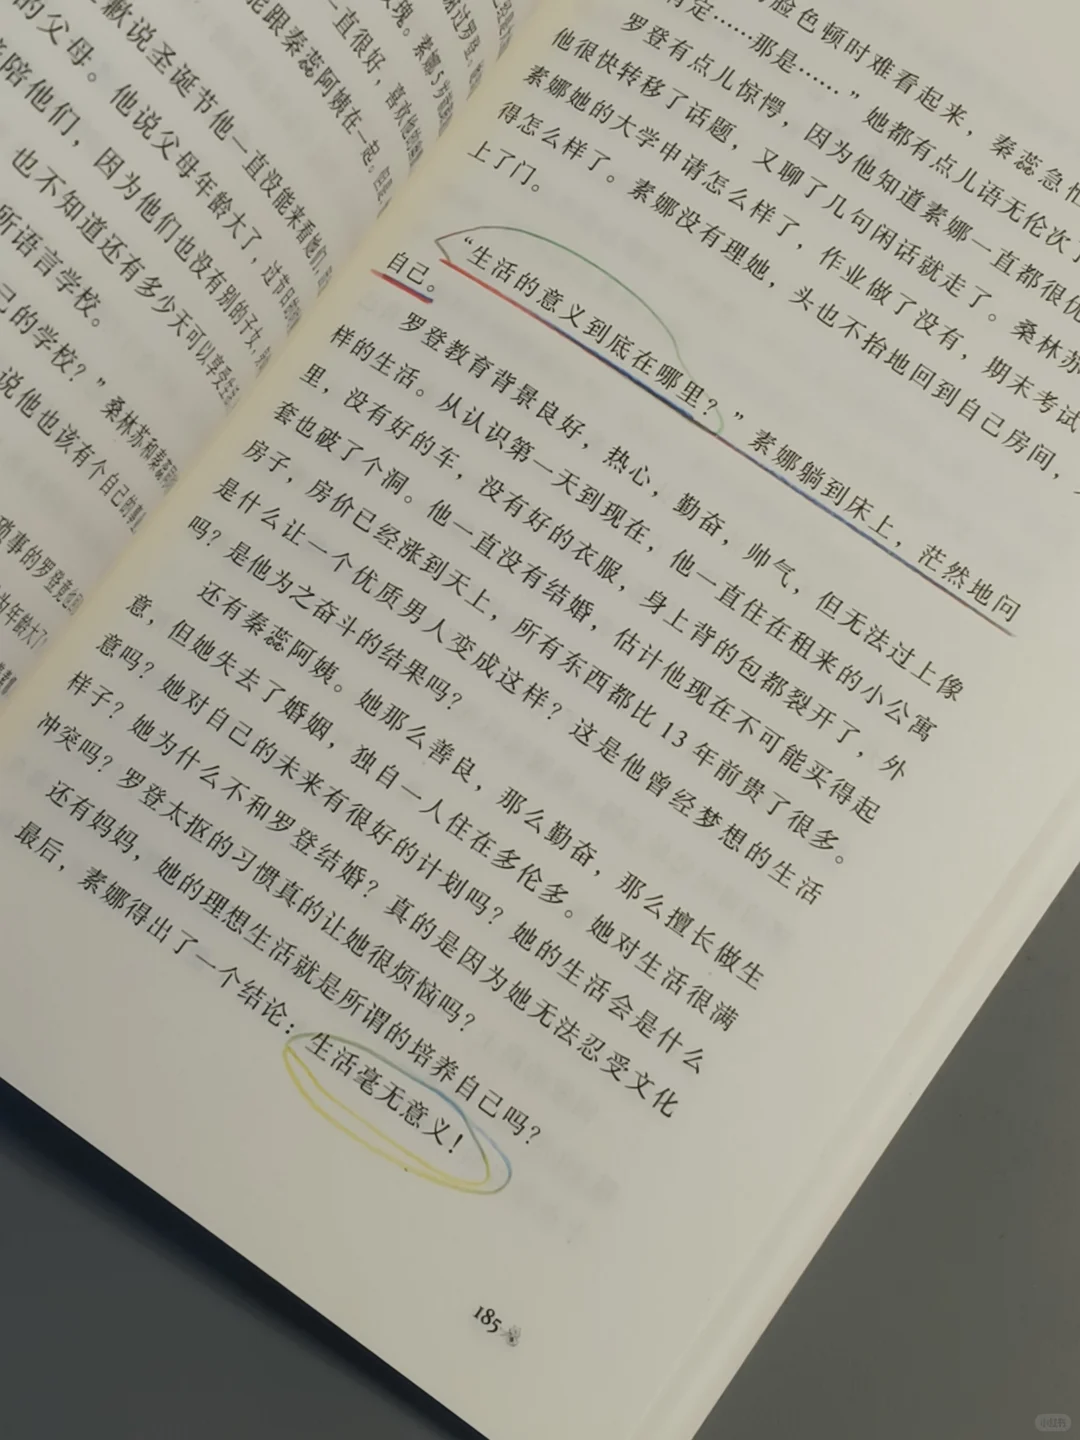 玫瑰。素娜5岁
一直很好，喜欢他的
能跟秦蕊阿姨在一起。
歉说圣诞节他一直没能来看她们，
的父母。他说父母年龄大了，过节日的
陪他们，因为他们也没有别的子女，
也不知道还有多少天可以享受生活
所语言学校。
己的学校？”桑林苏和秦蕊
说他也该有个自己的事
琐事的罗登竟也
为年龄大了
脸色顿时难看起来，秦蕊急忙
肯定……那是……”她都有点儿语无伦次了
罗登有点儿惊愕，因为他知道素娜一直都很优
他很快转移了话题，又聊了几句闲话就走了。桑林苏
素娜她的大学申请怎么样了，作业做了没有，期末考试
得怎么样了。素娜没有理她，头也不抬地回到自己房间，
上了门。
“生活的意义到底在哪里？”素娜躺到床上，茫然地问
自己。
罗登教育背景良好，热心，勤奋，帅气，但无法过上像
样的生活。从认识第一天到现在，他一直住在租来的小公寓
里，没有好的车，没有好的衣服，身上背的包都裂开了，外
套也破了个洞。他一直没有结婚，估计他现在不可能买得起
房子，房价已经涨到天上，所有东西都比13年前贵了很多。
是什么让一个优质男人变成这样？这是他曾经梦想的生活
吗？是他为之奋斗的结果吗？
还有秦蕊阿姨。她那么善良，那么勤奋，那么擅长做生
意，但她失去了婚姻，独自一人住在多伦多。她对生活很满
意吗？她对自己的未来有很好的计划吗？她的生活会是什么
样子？她为什么不和罗登结婚？真的是因为她无法忍受文化
冲突吗？罗登太抠的习惯真的让她很烦恼吗？
还有妈妈，她的理想生活就是所谓的培养自己吗？
最后，素娜得出了一个结论：生活毫无意义！
185
小红书